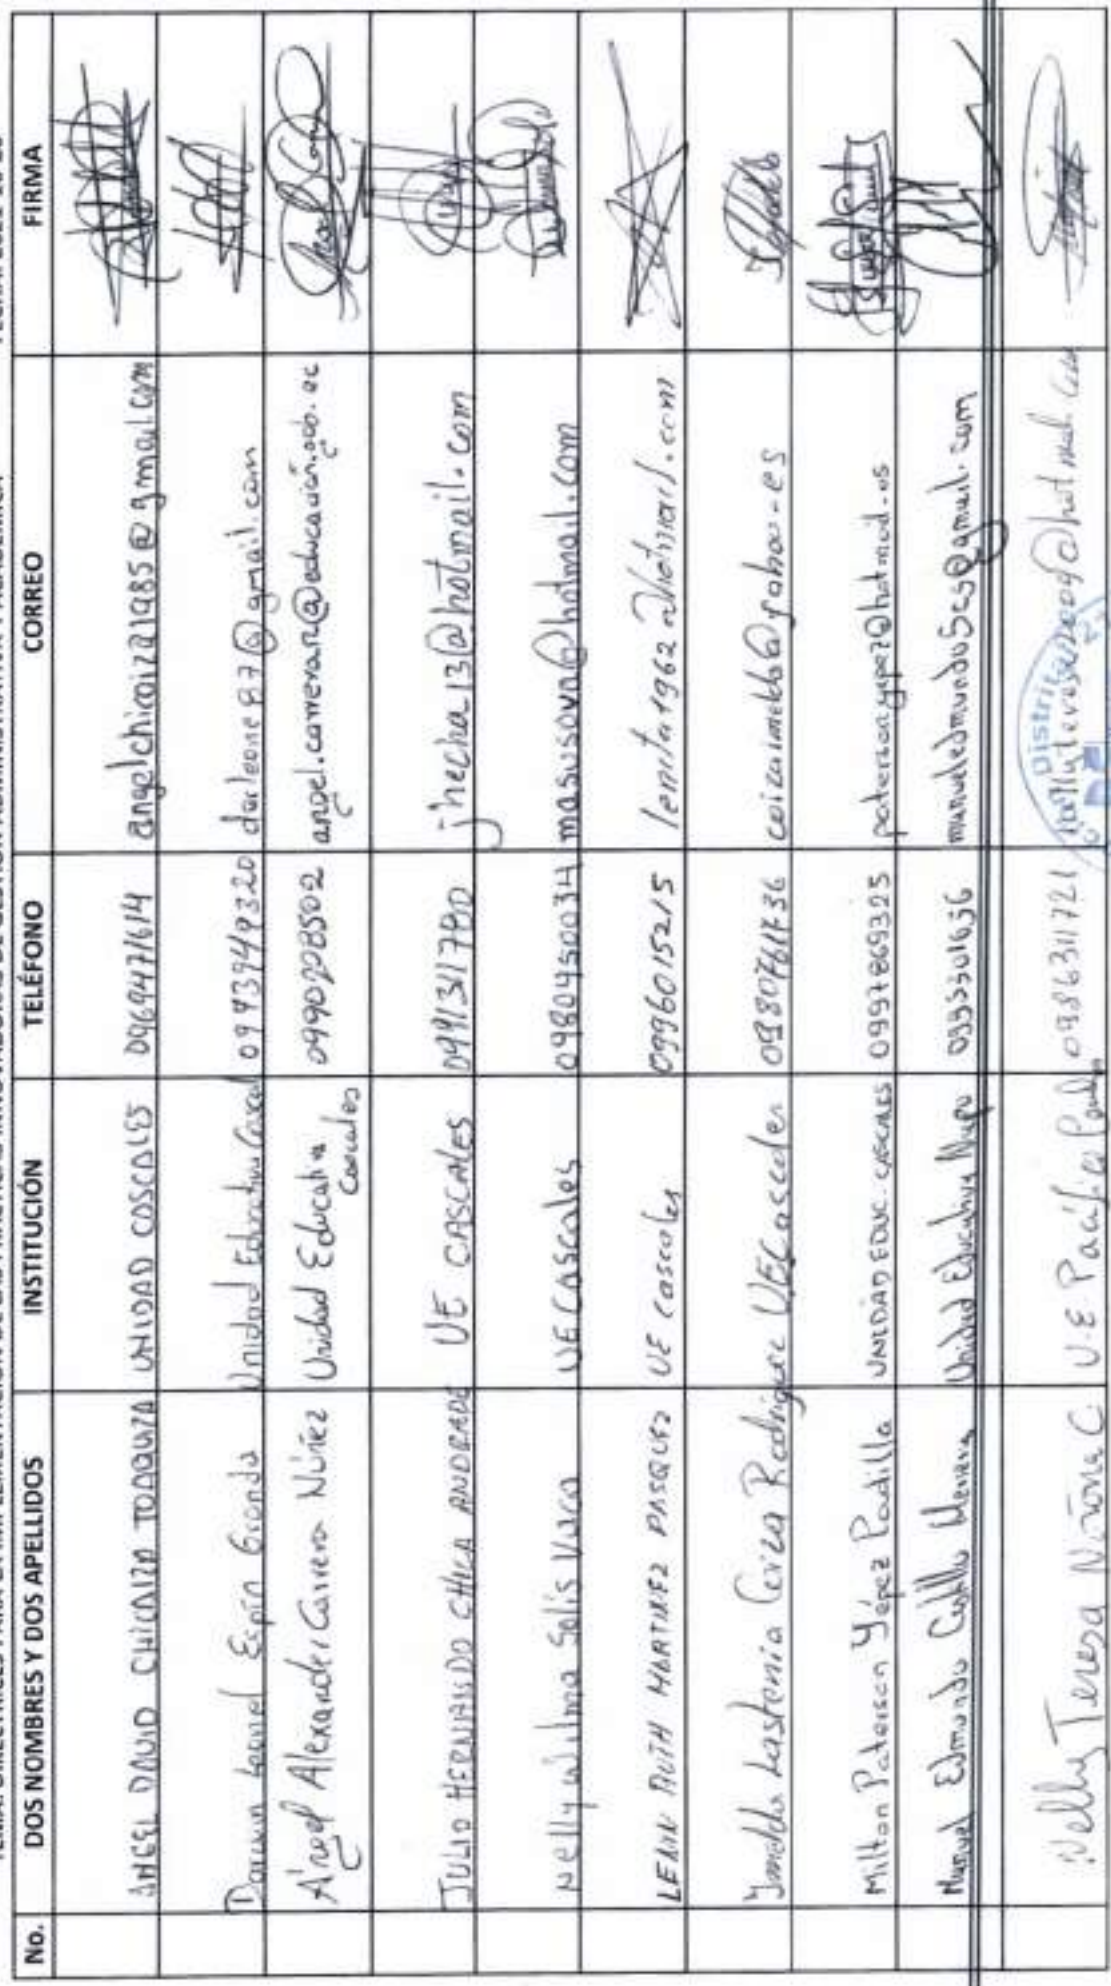 No. DOS NOMBRES Y DOS APELLIDOS INSTITUCIÓN TELÉFONO CORREO FIRMA
ANGEL DAVID CHICAIZA TOAQUIZA UNIDAD CASCALES 0969471614 angelchicaiza1985@gmail.com
Darwin Leonel Espín Granda Unidad Educativa Cascal 0979449320 darleone87@gmail.com
Ángel Alexander Carrera Núñez Unidad Educativa Cascales 0990208502 angel.carreran@educación.gob.ec
JULIO HERNANDO CHICA ANDRADE UE CASCALES 0991311780 jhecha13@hotmail.com
Nelly Wilma Solis Vaca UE Cascales 0980450034 masusova@hotmail.com
LENIN RUTH MARTINEZ PASQUEZ UE Cascales 0996015215 lenita1962@hotmail.com
Imelda Lastenia Coiza Rodriguez UE Cascales 0980761736 coizaimelda@yahoo.es
Milton Paterson Yépez Padilla UNIDAD EDUC. CASCALES 0997869325 patersonyepez@hotmail.es
Manuel Edmundo Castillo Unidad Educativa Napo manueledmundo5cs@gmail.com
Nelly Teresa C. U.E Pacífico 0986311721
Distrit